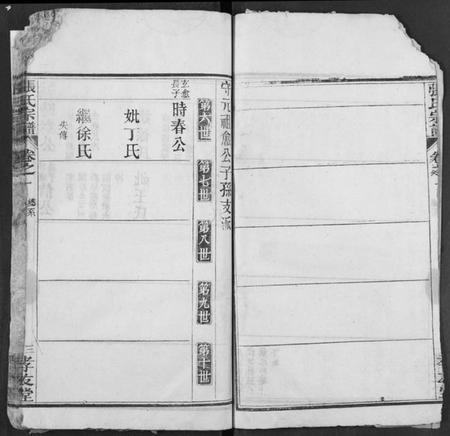 張氏宗譜
卷之一
守元祖愈公子孫支派
第六世
第七世
第八世
第九世
第十世
長子
時春公
妣丁氏
繼徐氏
失傳
張氏宗譜
卷之一
總系
孝友堂